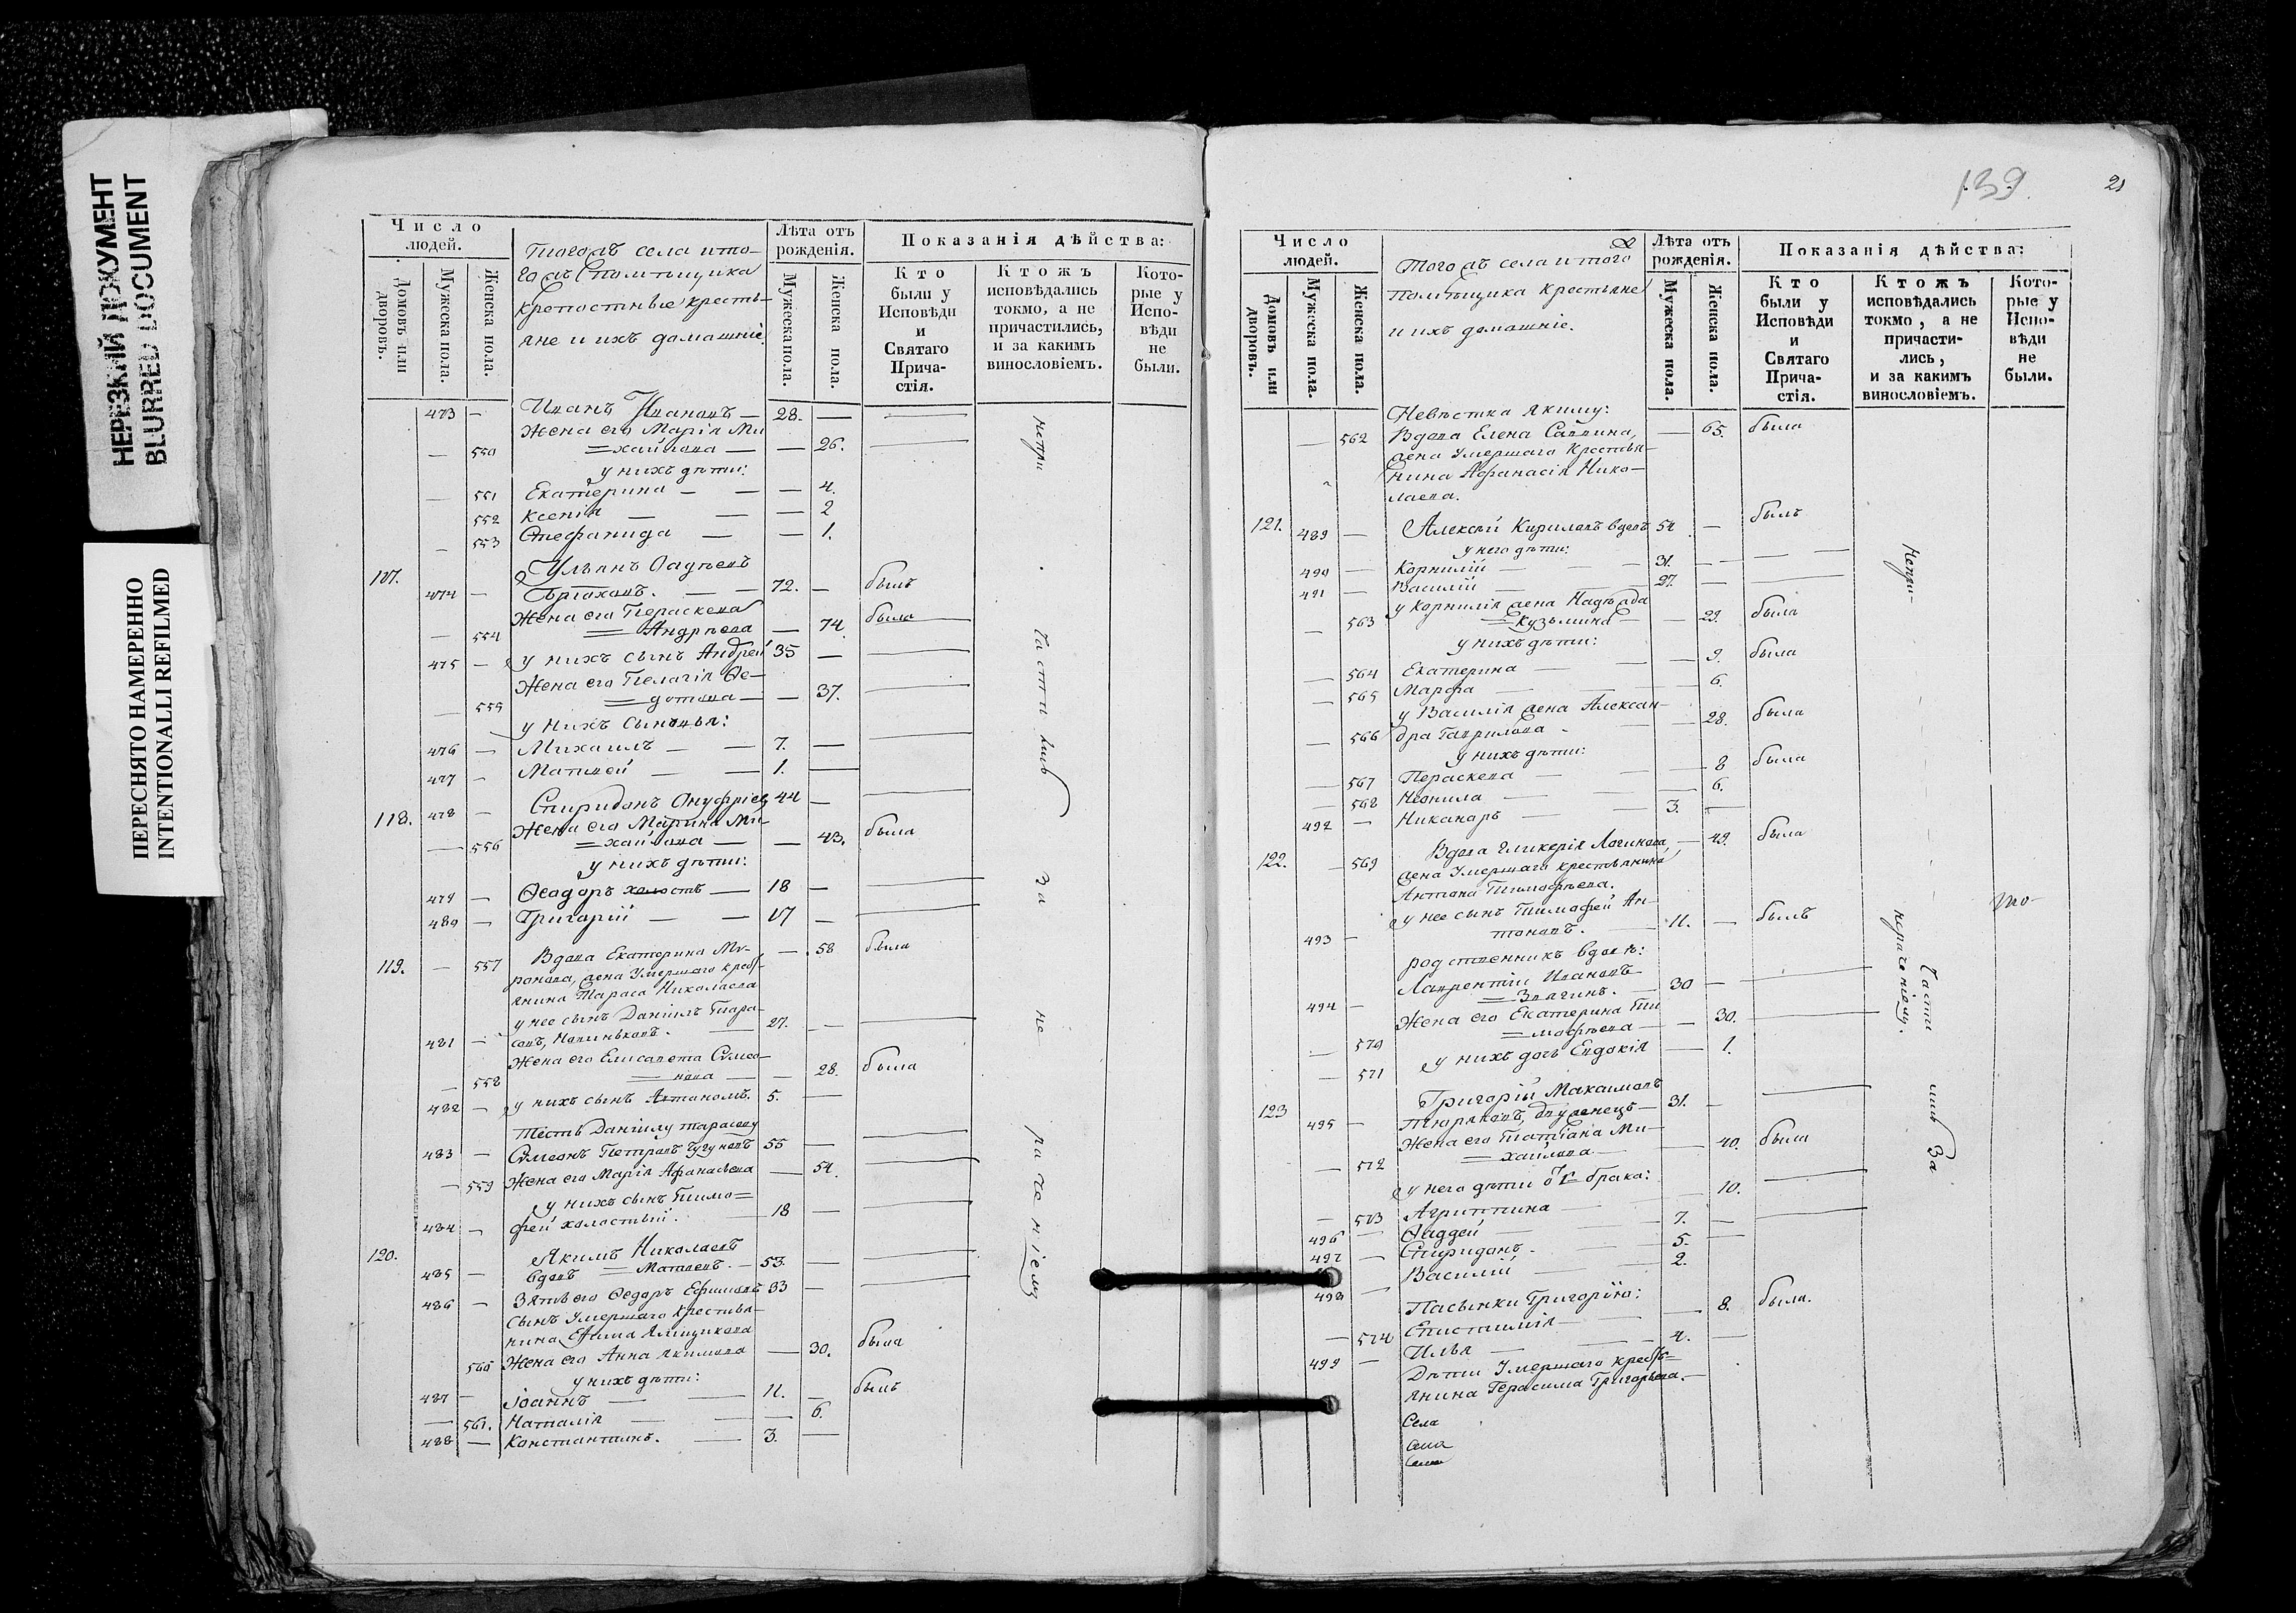 НЕРЕЗКИЙ ДОКУМЕНТ
BLURRED DOCUMENT
ПЕРЕСНЯТО НАМЕРЕННО
INTENTIONALLI REFILMED
Число людей.
Домовъ или дворовъ.
Мужеска пола.
Женска пола.
Тогожъ села и то-
гожъ помѣщика
крепостные кресть-
яне и ихъ домашніе.
Лѣта отъ рожденія.
Мужеска пола.
Женска пола.
Показанія дѣйства:
Кто были у Исповѣди и Святаго Прича-стія.
Ктожъ исповѣдались токмо, а не причастились, и за какимъ винословіемъ.
Кото-рые у Испо-вѣди не были.
473 — Иванъ Ивановъ — 28. —
Жена его Марія Ми
— 550 =хайлова — — 26.
у нихъ дѣти:
— 551 Екатерина — — — 4.
552 Ксенія — — — 2
— 553 Стефанида — — 1.
117. Ульянъ Фадѣевъ
474 — — — 72. — былъ
Жена его Параскева
— 554 = Андрѣева — 74. была
475 — у нихъ сынъ Андрей 35 —
Жена его Пелагія Ѳе-
— 555 =дотова — — 37.
у нихъ сыновья:
476 — Михаилъ — — 7. —
477 — Матвей — — 1. —
118. 478 — Спиридонъ Онуфріевъ 44 —
Жена его Марина Ми-
— 556 =хайлова — — 43. была
у нихъ дѣти:
479 — Ѳеодоръ холостъ — 18 —
480 — Григорій — — 17 —
119. — 557 Вдова Екатерина Ми-
ронова, жена умершаго крест-
янина Тараса Николаева
— 58 была
у нее сынъ Даніилъ Тара-
481 — совъ, — 27. —
Жена его Елисавета Симео-
— 558 = нова — — 28. была
482 — у нихъ сынъ Артамонъ. 5. —
Тесть Даніилу Тарасову
483 — Симеонъ Петровъ Чугуновъ 55 —
— 559 Жена его Марія Афанасьева — 54.
у нихъ сынъ Тимо=
484 — фей холостый. 18 —
120. Якимъ Николаевъ
485 — вдовъ = — 53. —
486 — Зять его Ѳедоръ Ефимовъ 33 —
сынъ умершаго крестья-
нина Ефима
560 Жена его Анна Якимова — 30. была
у нихъ дѣти:
487 — Іоаннъ — — 11. — былъ
— 561. Наталія — — — 6.
488 — Константинъ. — 3. —
непри
частились
за
не
раченіемъ
139.
21
Число людей.
Домовъ или дворовъ.
Мужеска пола.
Женска пола.
Тогожъ села и того
помѣщика крестьяне
и ихъ домашніе.
Лѣта отъ рожденія.
Мужеска пола.
Женска пола.
Показанія дѣйства:
Кто были у Исповѣди и Святаго Прича-стія.
Ктожъ исповѣдались токмо, а не причасти-лись, и за какимъ винословіемъ.
Кото-рые у Испо-вѣди не были.
Невѣстка Якиму:
— 562 Вдова Елена Саввина, — 65. была
жена умершаго крестья-
нина Афанасія Нико-
лаева.
121. 489 — Алексѣй Кириловъ вдовъ 54 — былъ
у него дѣти:
490 — Корнилій — — 31. —
491 — Василій — 27. —
у Корнилія жена Надѣжда
— 563 =Кузьмина — — 29. была
у нихъ дѣти:
— 564 Екатерина — — — 9. была
— 565 Марфа — — — 6.
у Василія жена Алексан-
— 566 дра Гаврилова — 28. была
у нихъ дѣти:
— 567 Параскева — — — 8 была
— 568 Неонила — — 6.
492 — Никаноръ — — 3. —
122. — 569 Вдова Гликерія Логинова, — 49. была
жена умершаго крестьянина
Антона Тимофѣева.
у нее сынъ Тимофей Ан-
493 — тоновъ. — 11. — былъ
родственникъ вдовѣ:
Лаврентій Ивановъ
494 — = — 30 —
Жена его Екатерина Ти
— 570 =мофѣева — — 30.
— 571 у нихъ дочь Евдокія — 1.
123 Григорій Максимовъ
495 — Тюряковъ, двуженецъ — 31. —
Жена его Татіана Ми-
— 572 =хайлова — — 40. была
у него дѣти 1го брака:
— 573 Агриппина — — 10.
496 — Фаддей — 7. —
497 — Спиридонъ. — 5. —
498 — Василій — — 2.
Пасынки Григорію:
— 574 Епистимія — — 8. была.
499 — Илья — — 4. —
Дѣти умершаго кресть=
янина Герасима Григорьева.
Села
Непри-
частились за
нераченіемъ.